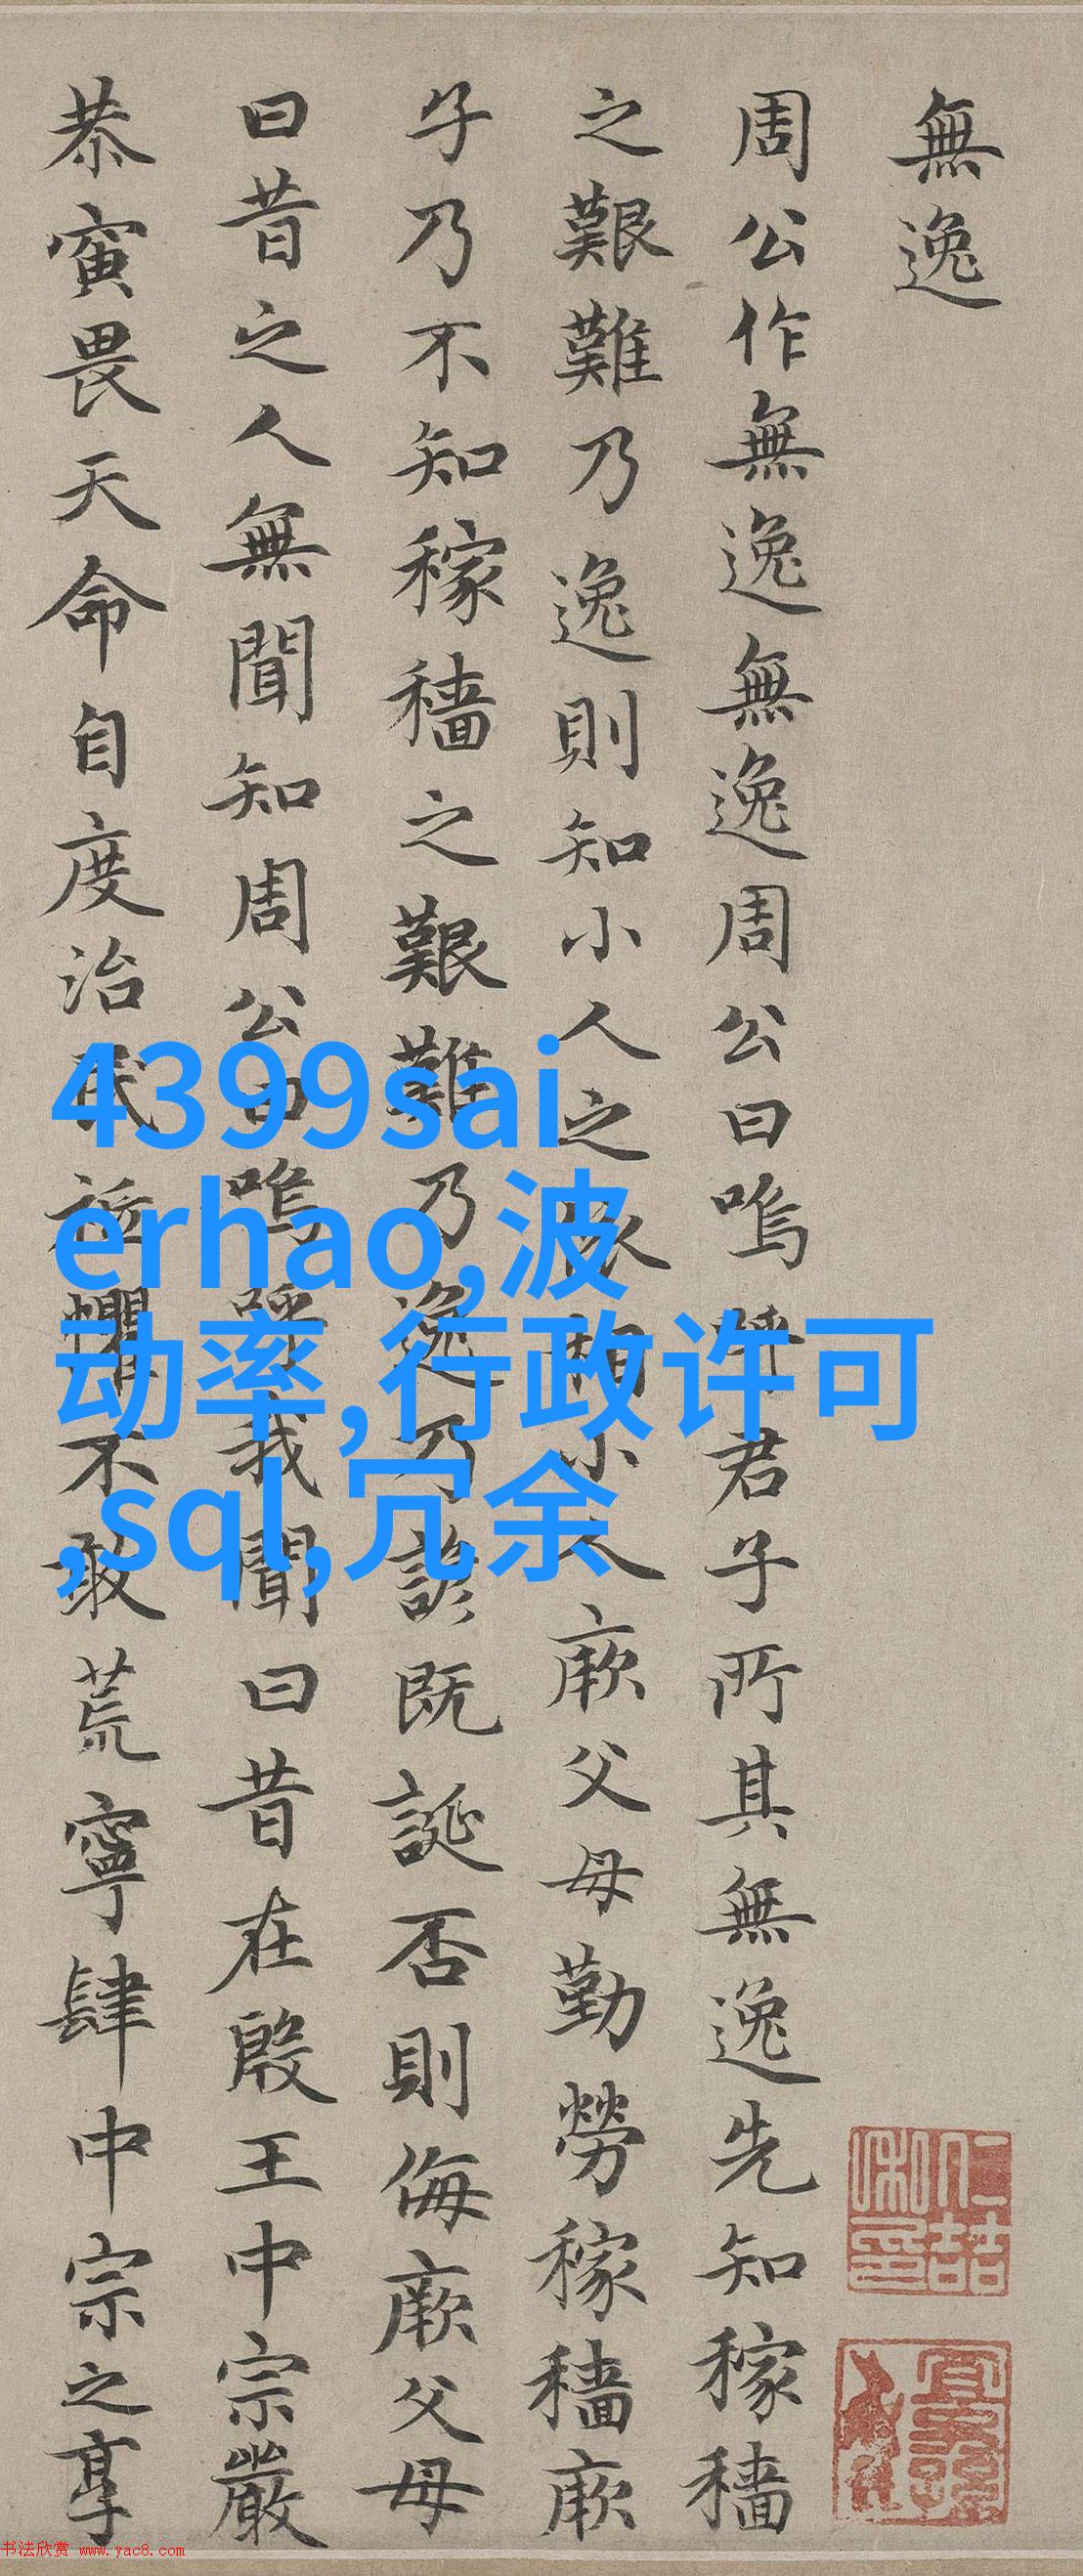 無逸
周公作無逸無逸周公曰嗚呼君子所其無逸先知稼穡
之艱難乃逸則知小人之依相小人厥父母勤勞稼穡厥
子乃不知稼穡之艱難乃逸乃諺既誕否則侮厥父母
曰昔之人無聞知周公曰嗚呼我聞曰昔在殷王中宗嚴
恭寅畏天命自度治民祗懼不敢荒寧肆中宗之享
4399sai
erhao,波
动率,行政许可
,sql,冗余
书法欣赏 www.yac8.com